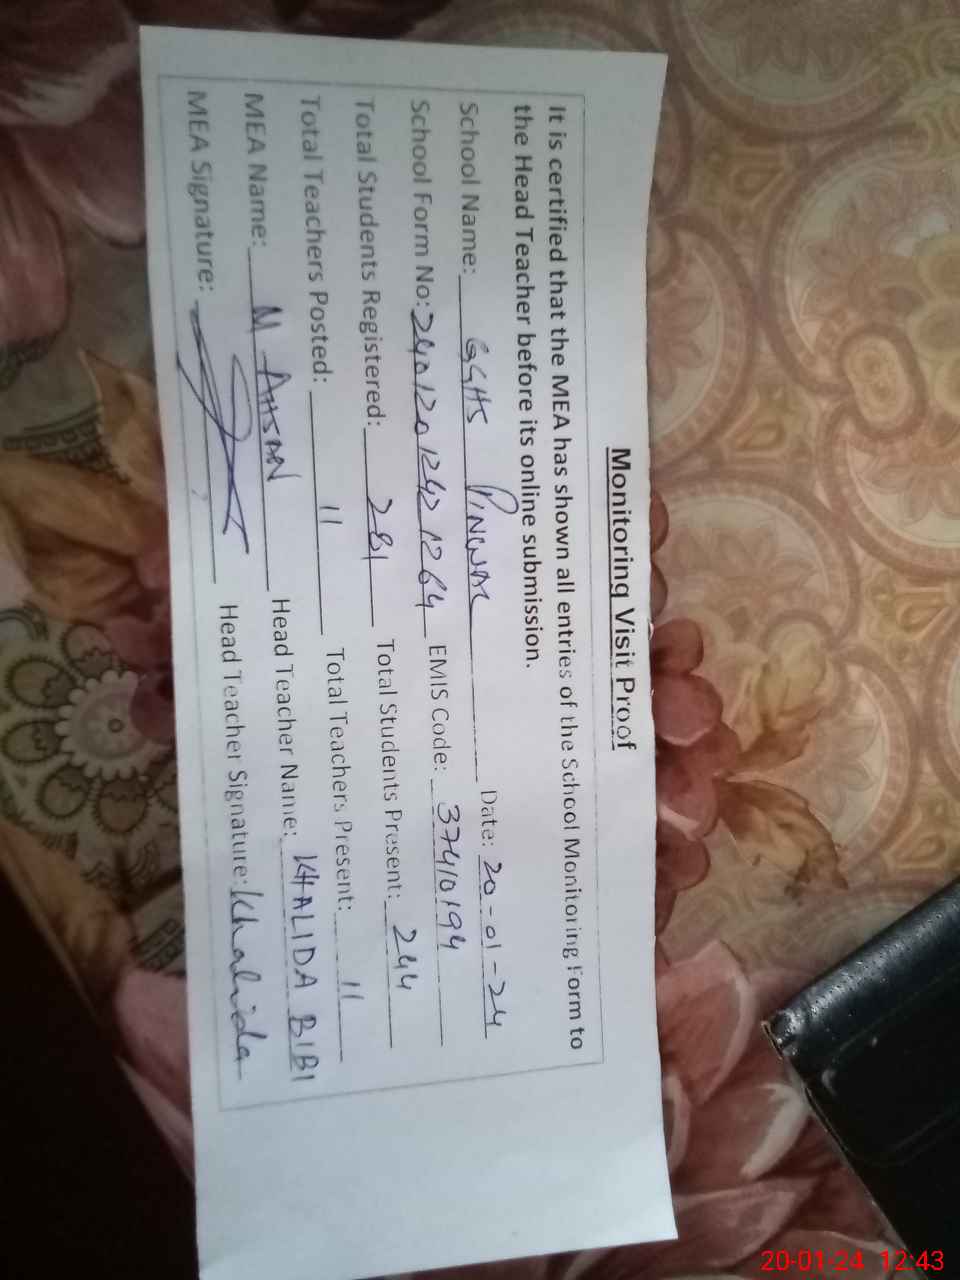 Monitoring Visit Proof
It is certified that the MEA has shown all entries of the School Monitoring Form to
the Head Teacher before its online submission.
School Name: GGHS PINWAL Date: 20-01-24
School Form No: 24012012421264 EMIS Code: 37410194
Total Students Registered: 281 Total Students Present: 244
Total Teachers Posted: 11 Total Teachers Present: 11
MEA Name: M AHSAN Head Teacher Name: KHALIDA BIBI
MEA Signature: Head Teacher Signature: Khalida
20-01-24 12:43